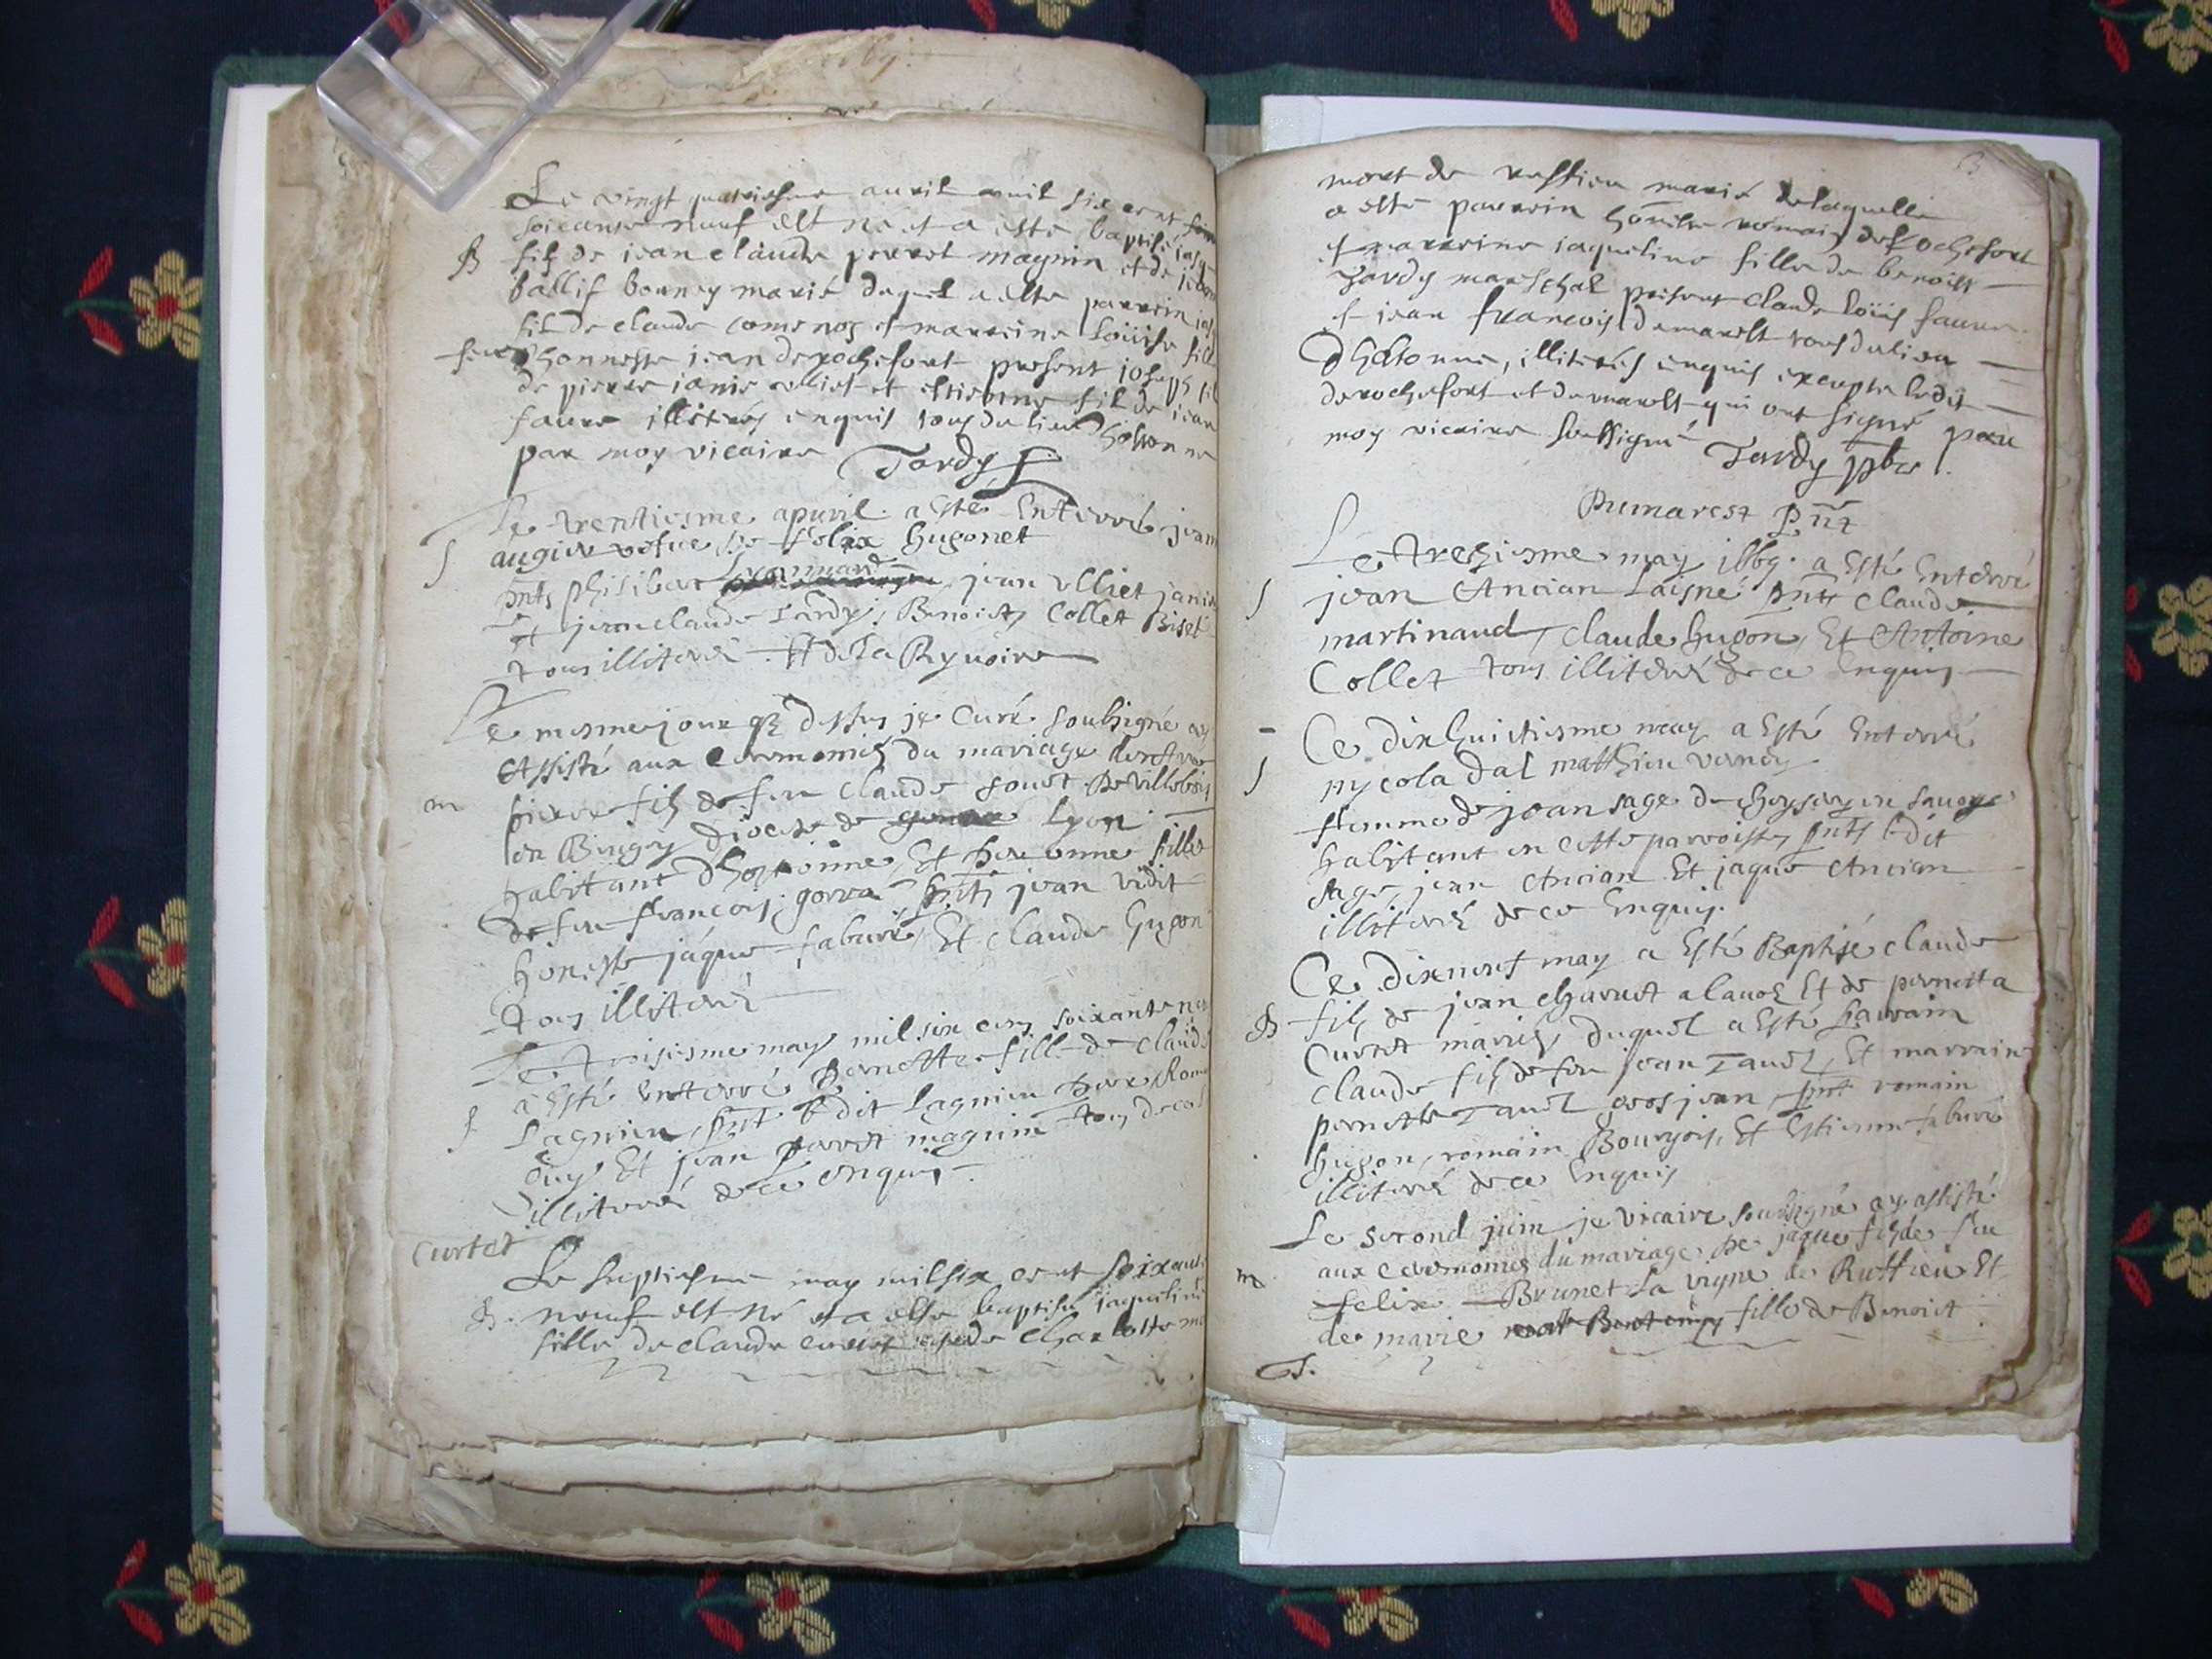 Le vingt quatriesme avril mil six cent
soixante neuf est né et a esté baptisé
B fils de jean claude perret magnin et de
ballif bonney marié duquel a este parrein
fil de claude et marreine loüise fille
feu honneste jean de rochefort present joseph fil
de pierre janie olliet et estienne fil de jean
faure illiterés enquis tous du lieu dhostonne
par moy vicaire Tardy
Le trentiesme apuril a esté Enterré
S augier vefue de felix hugonet
pnts philiber jean ulliet
et jean claude Tardy, Benoict Collet Biset
tous illiteré De la Rynoire
Le mesme jour que dessus je Curé soubsigné ay
Assisté aux Ceremonies du mariage dentre
m pierre fils de feu Claude gouet De villebois
en Bugey diocese de Lyon
habitant dhostonne, Et fille
de feu francois gorra pnts jean vidit
honeste jáque faburé, Et claude hugon
Tous illiteré
Le Troisiesme may mil six cens soixante
a Esté enterré Pernette fille de claude
S Lagnieu, pnt ledit Lagnieu
Et jean perret magnin tous
illiteré de ce enquis
Curtet
Le septiesme may mil six cent soixante
B. neuf est né et a este baptisé jaqueline
fille de claude curtet et de charlotte
3
mort de rassieu marié de laquelle
a esté parrein honeste romain de Rochefort
et marreine jaqueline fille de benoist
Tardy mareschal present claude loüis faure
et jean françois demarest tous du lieu
Dhostonne, illiterés enquis excepte ledit
de rochefort et demarest qui ont signé par
moy vicaire soussigné Tardy pbre.
Dumarest pnt
Le tresiesme may 1669. a Esté Enterré
S jean Ancian Laisné pnts Claude
martinaud, Claude hugon, Et Antoine
Collet tous illiteré de ce Enquis
Ce dixhuictiesme may a Esté Enterré
S nycola dal matthieu vernay
femme de jean sage de en savoye
habitant en cette parroisse, pnts ledit
sage, jean Ancian Et jaque Ancian
illiteré de ce Enquis.
Ce dixneuf may a Esté Baptisé claude
B fils de jean charvet Et de pernetta
Curtet mariés, duquel a Esté parrain
Claude fils de feu jean Et marraine
pernette gros jean, pnt romain
hugon, romain Bourgois, Et Estienne faburé
illiteré de ce Enquis
Le second juin je vicaire soubsigné ay assisté
aux ceremonies du mariage de jaque fils de feu
m felix Brunet La vigne de Ruffieu Et
de marie fille de Benoict